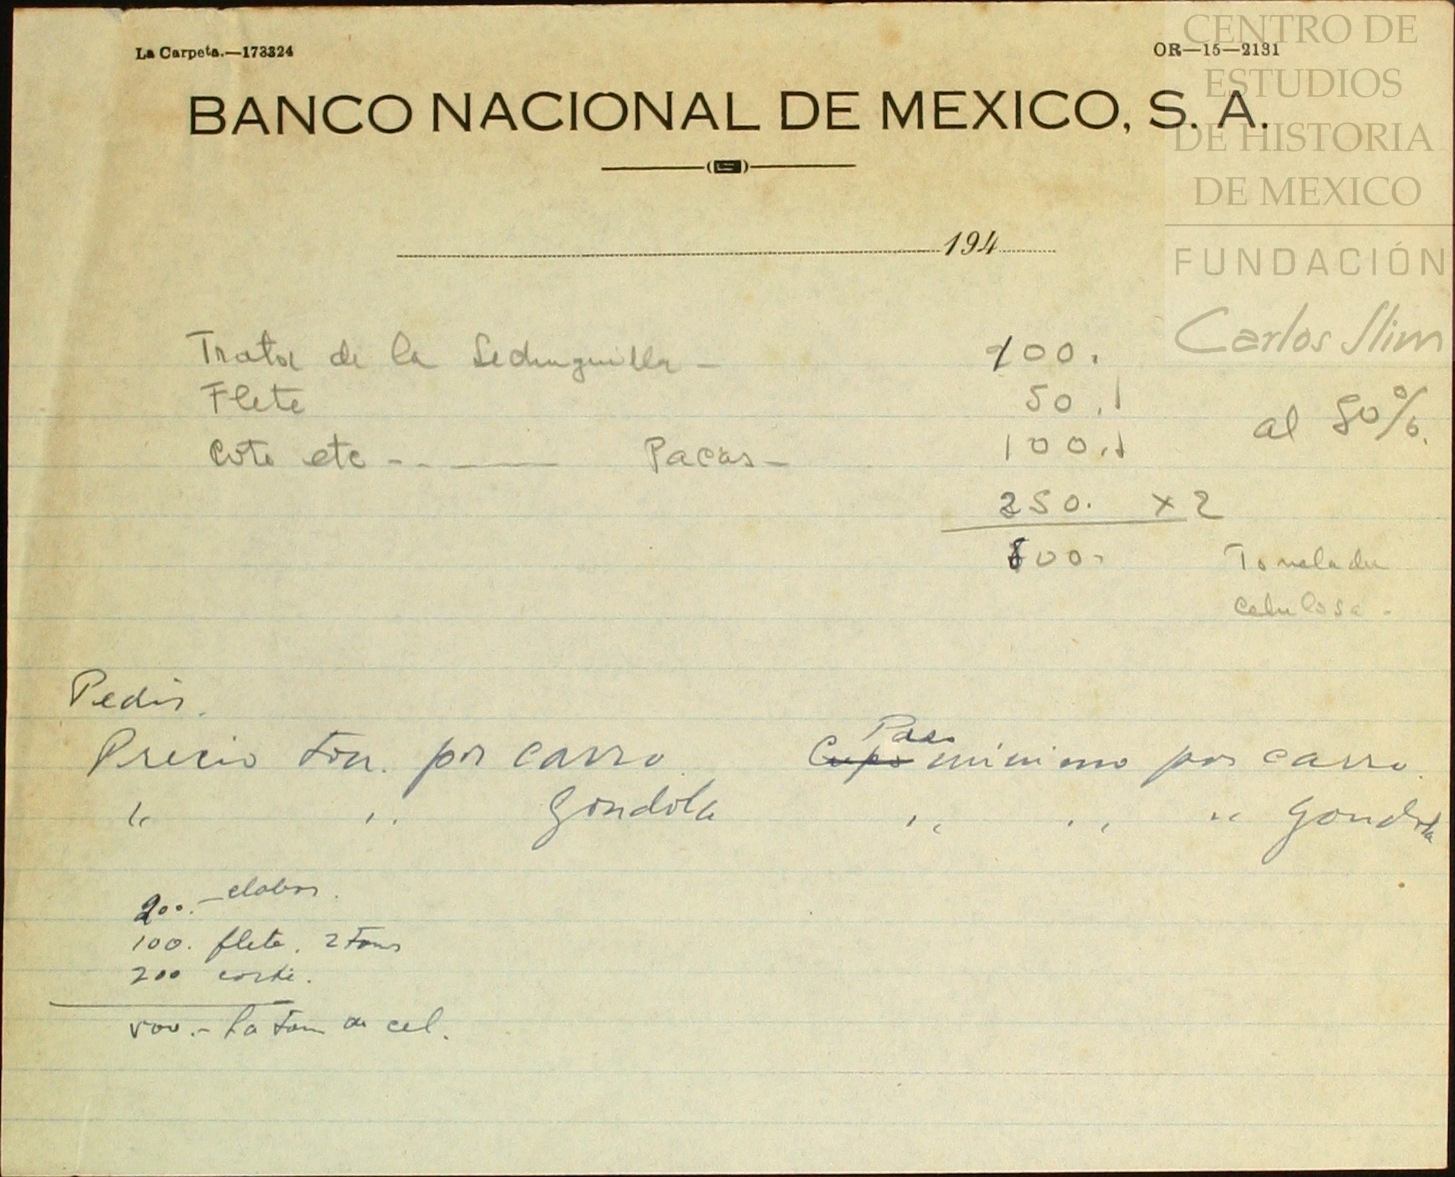 La Carpeta.—173324
OR—15—2131
BANCO NACIONAL DE MEXICO, S. A.
194
CENTRO DE
ESTUDIOS
DE HISTORIA
DE MEXICO
FUNDACIÓN
Carlos Slim
de la 100.
Flete 50.
etc - - Pacas - 100.
al 80%.
250. x 2
500. Tonelada
celulosa.
Pedir.
Precio ton. por carro. Cupo Peso minimo por carro.
" " Gondola " " " Gondola
200.- elabor.
100. flete. 2 Tons
200 corte.
500.- la ton de cel.